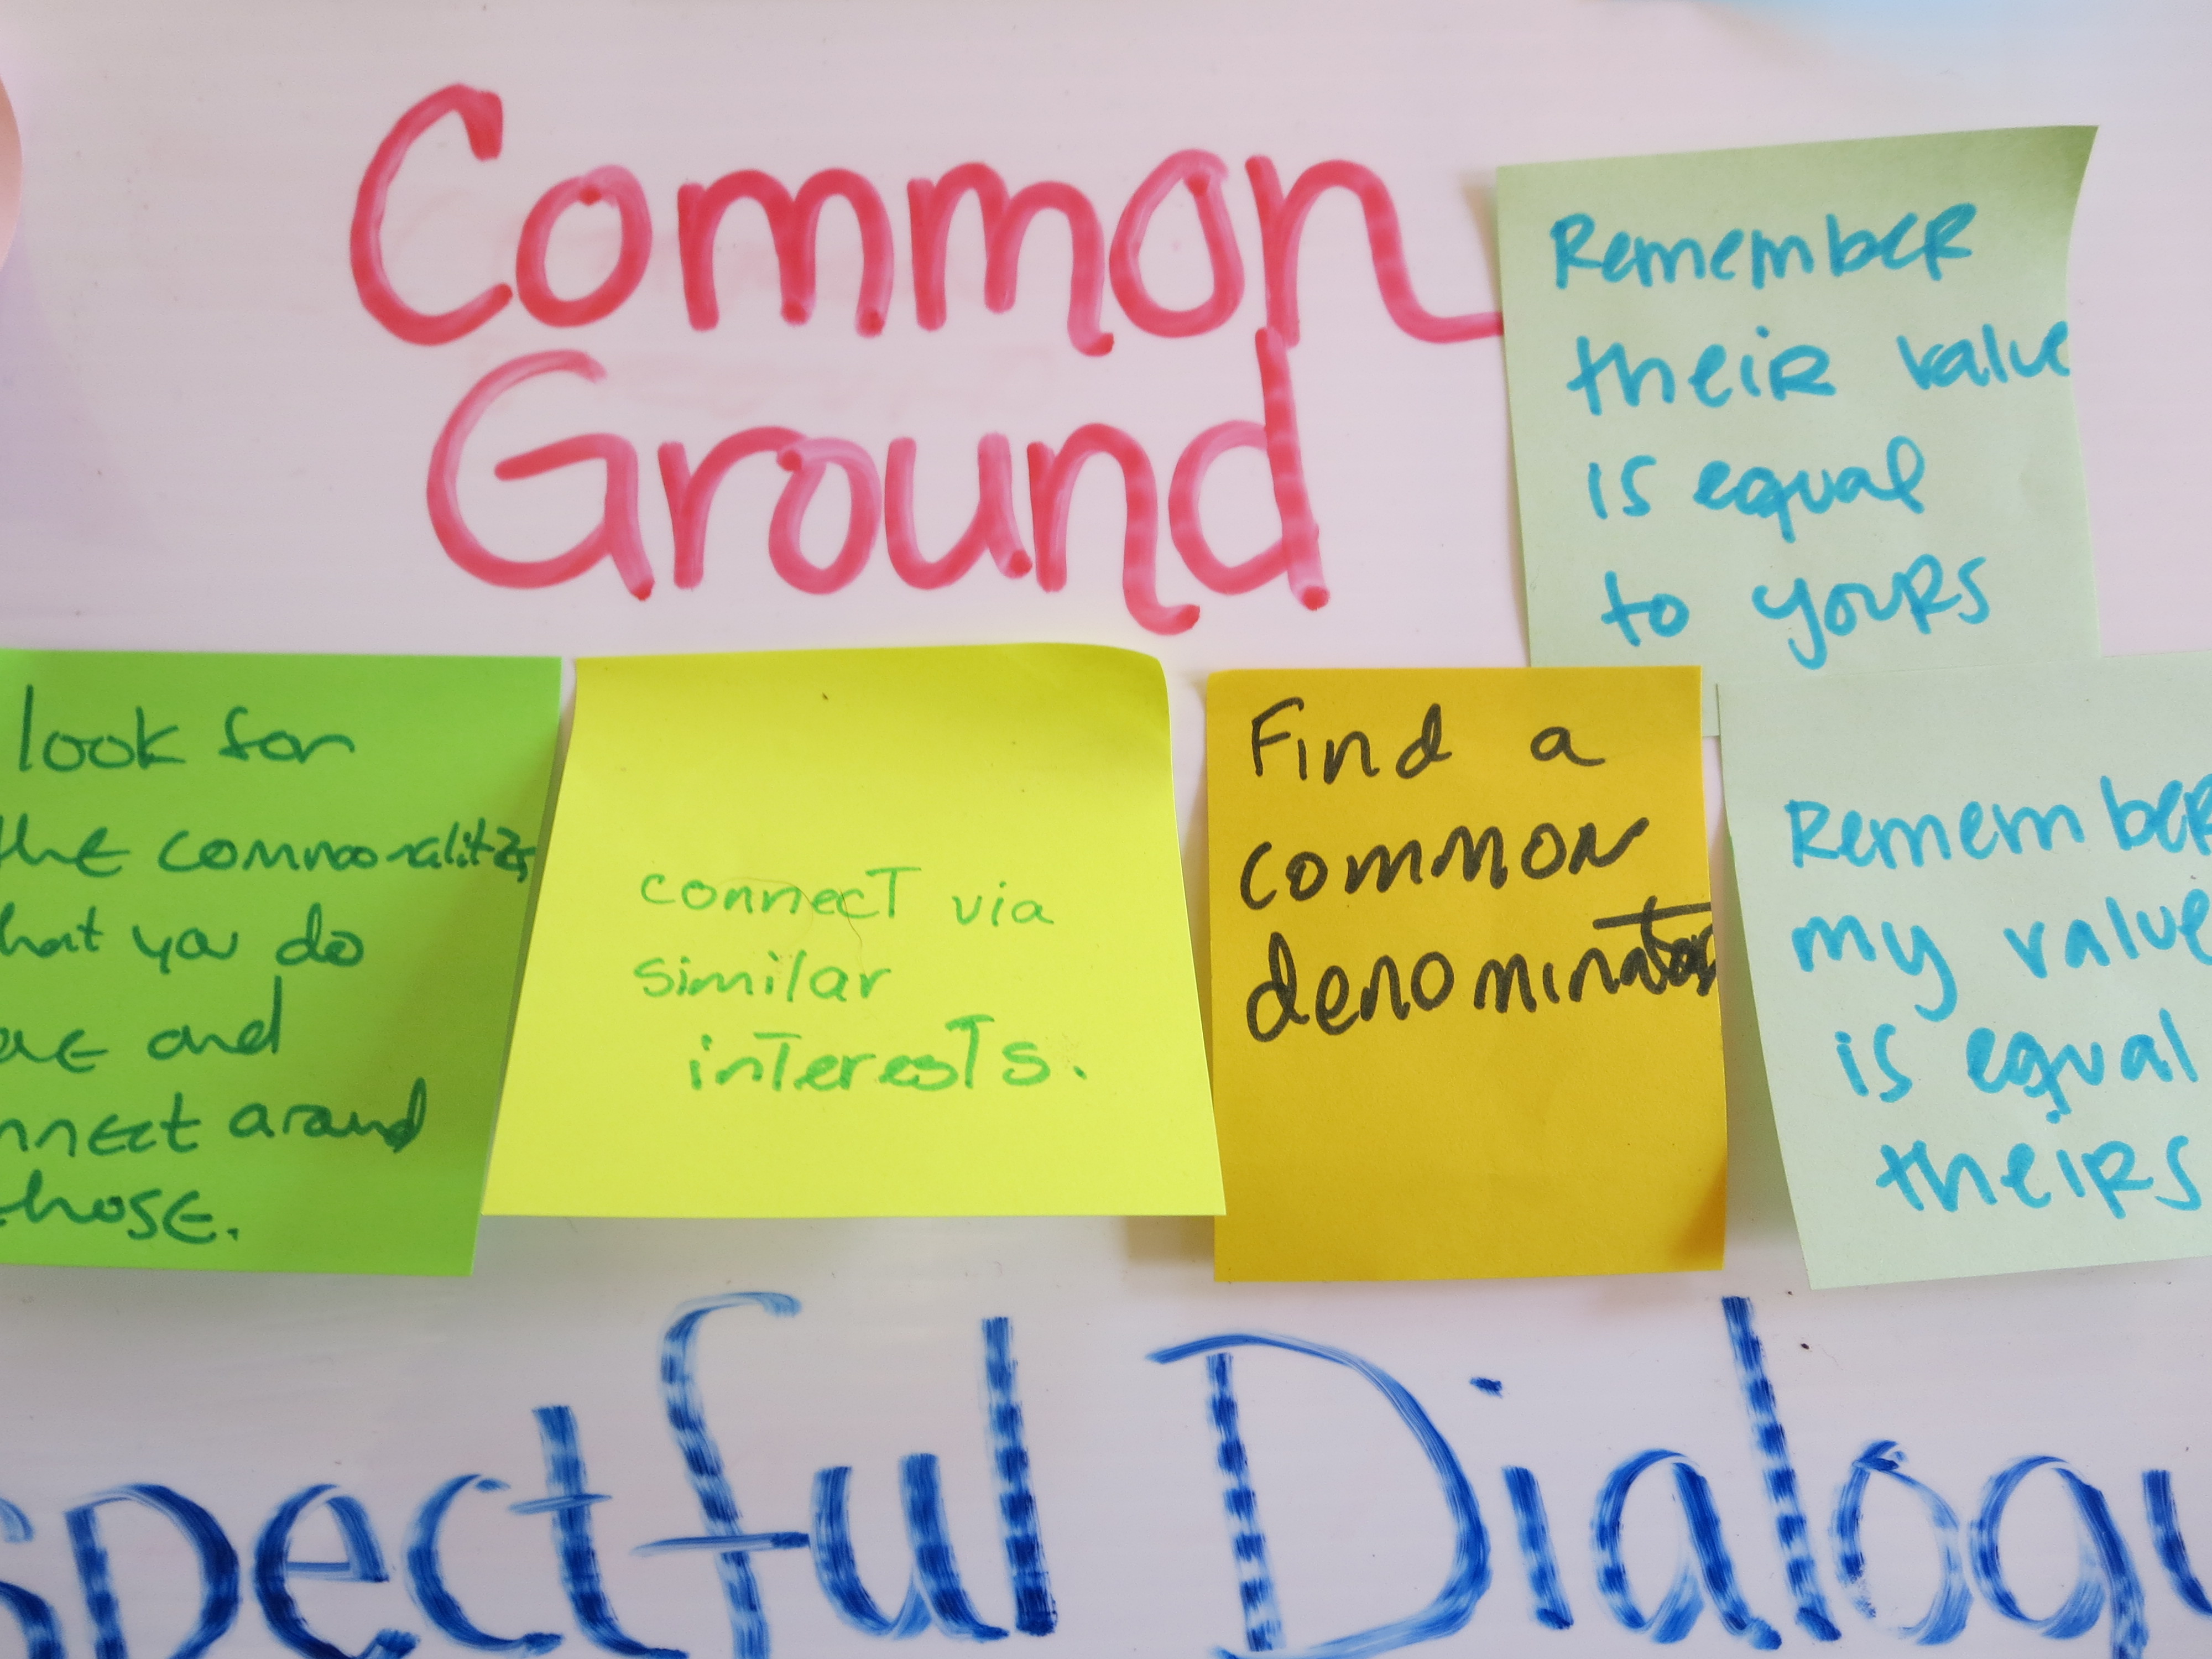 Common
Ground
Remember
their value
is equal
to yours
look for
the commonalities
that you do
and
connect around
those.
connect via
similar
interests.
Find a
common
denominator
Remember
my value
is equal
theirs
spectful Dialogu